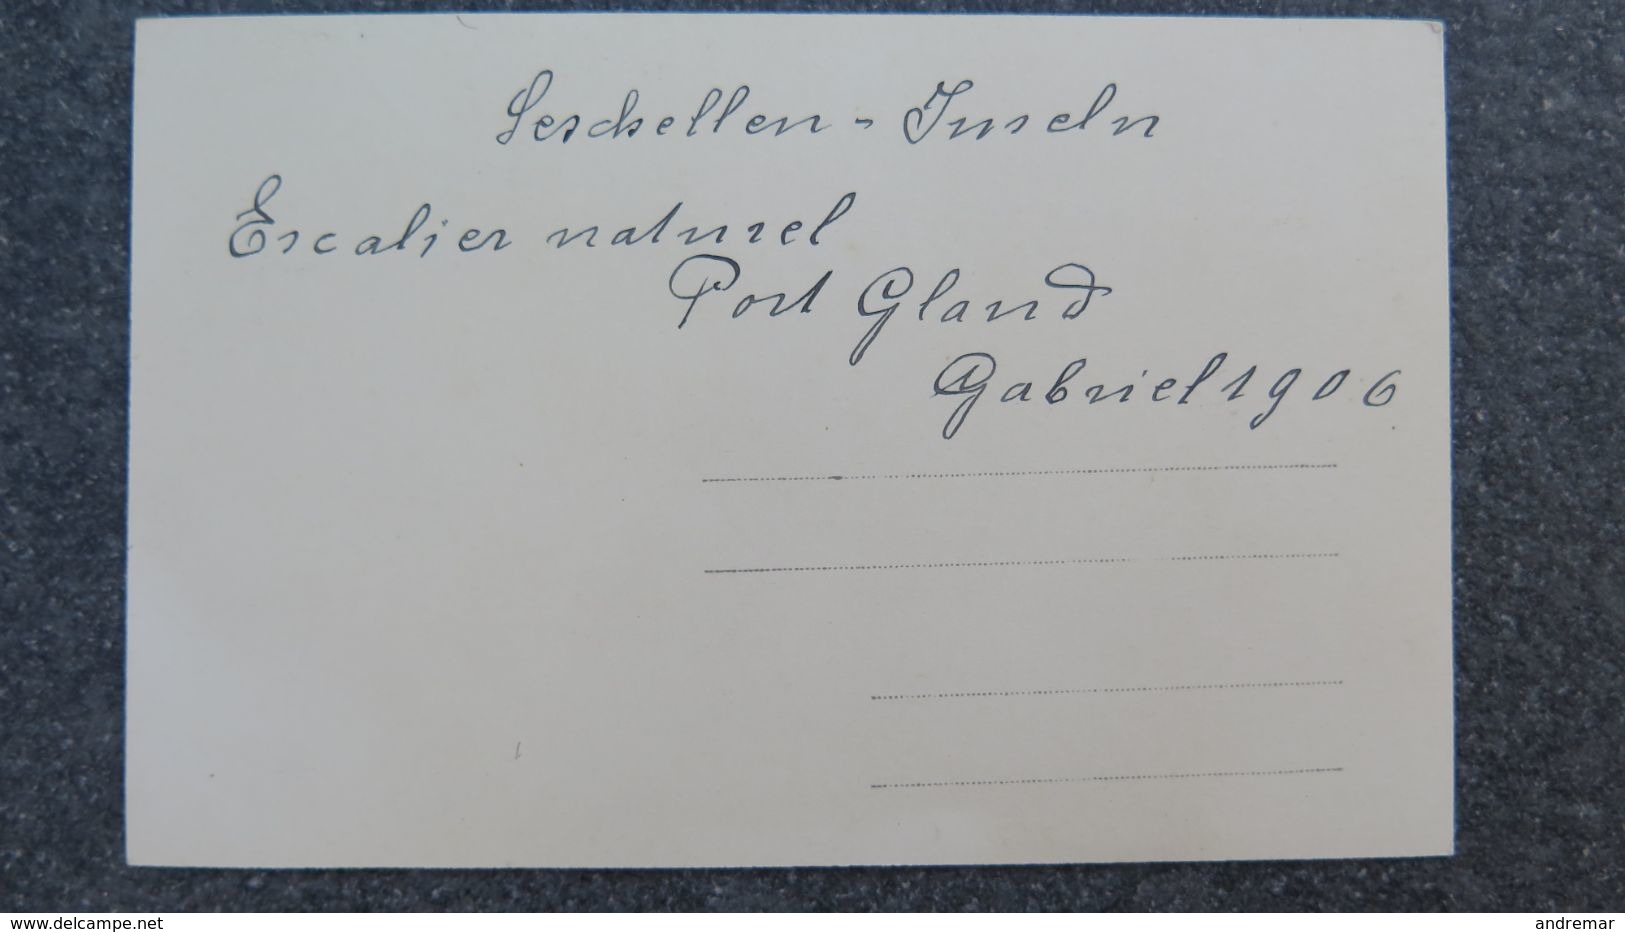 Seschellen - Inseln
Escalier naturel
Port Gland
Gabriel 1906
www.delcampe.net
andremar